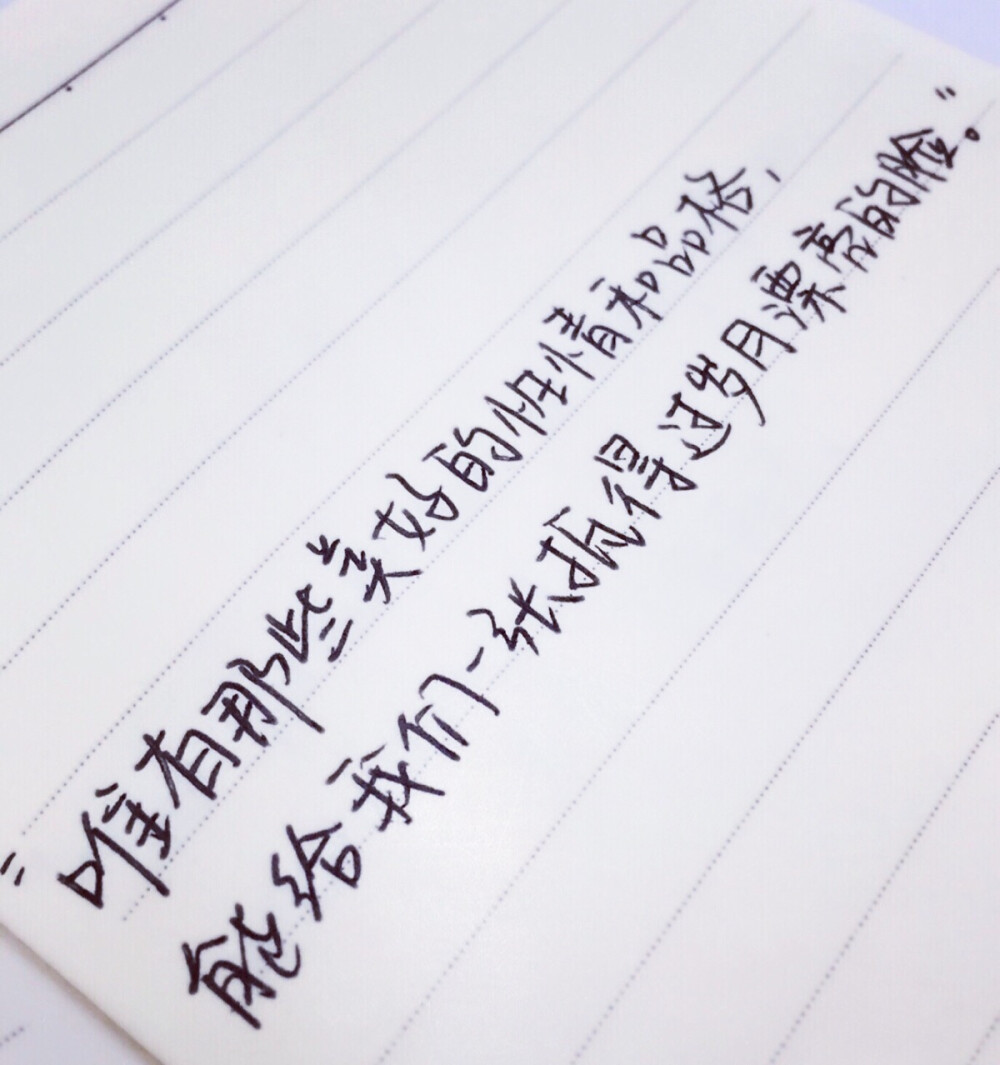 "唯有那些美好的性情和品格,
能给我们一张抵得过岁月漂亮的脸。"